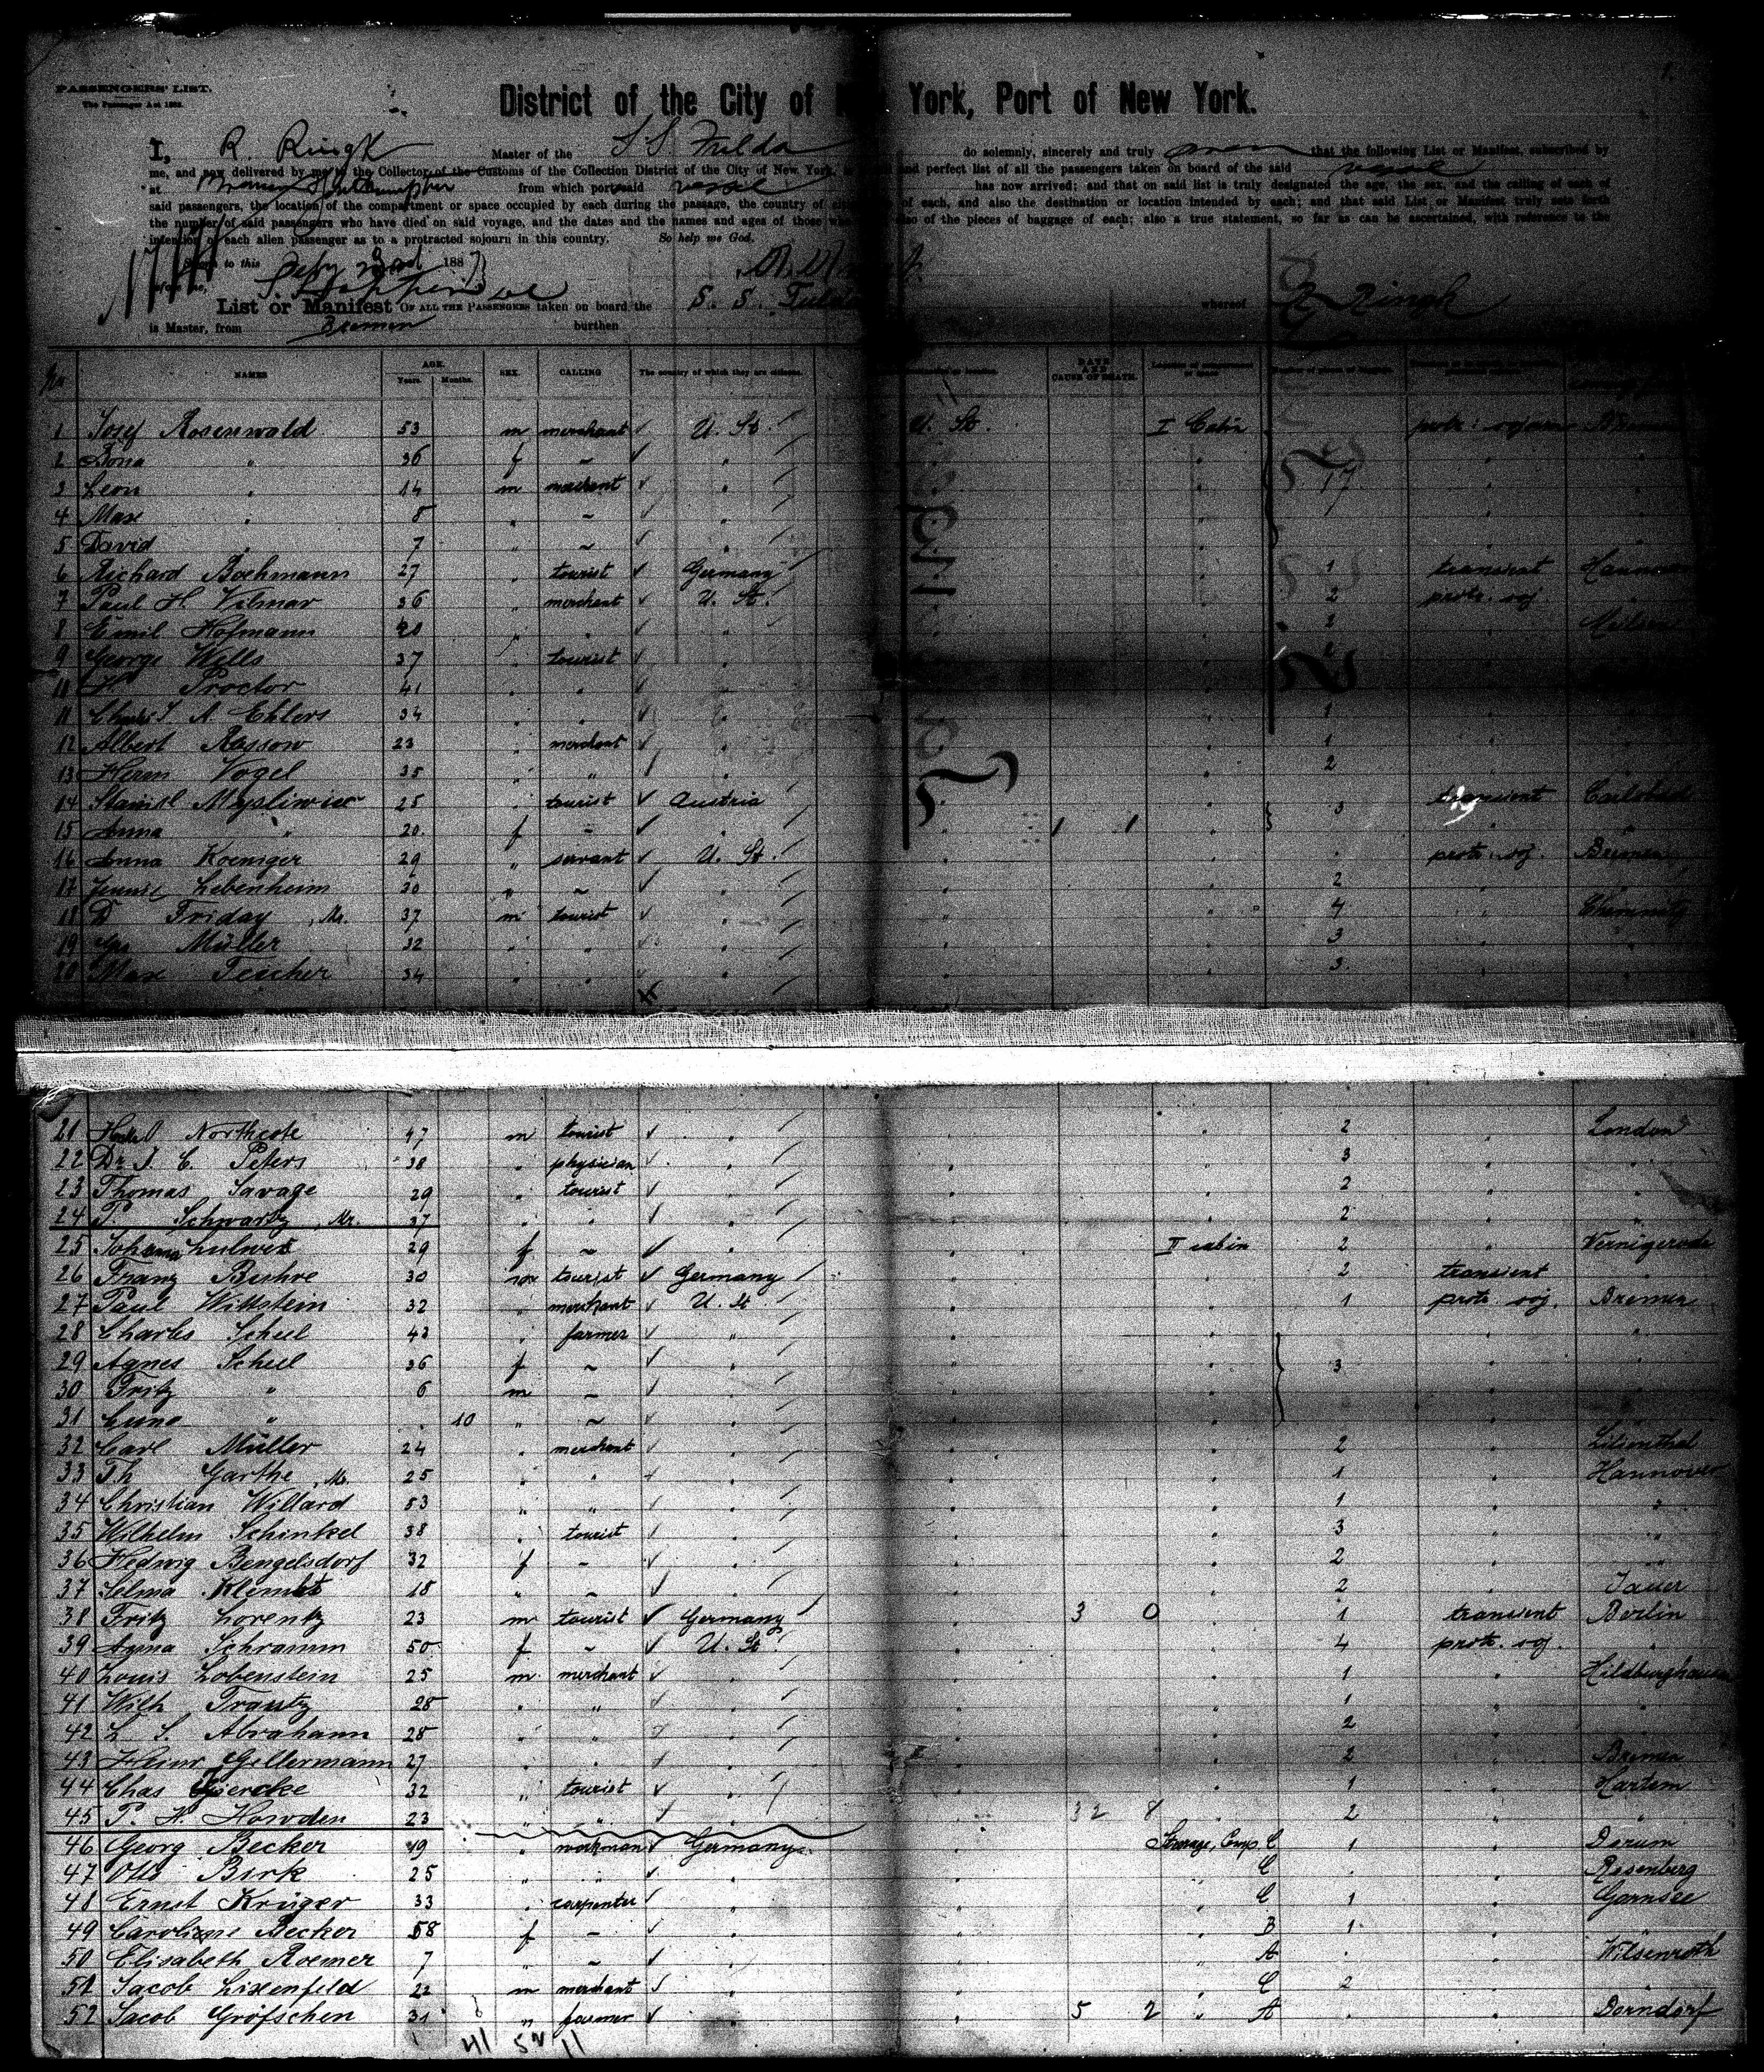 PASSENGERS' LIST.
The Passenger Act 1882.
District of the City of York, Port of New York.
I, R. Ringk Master of the S S Fulda do solemnly, sincerely and truly that the following List or Manifest, subscribed by
me, and now delivered by me to the Collector of the Customs of the Collection District of the City of New York, and perfect list of all the passengers taken on board of the said vessel
at Bremen from which port said vessel has now arrived; and that on said list is truly designated the age, the sex, and the calling of each of
said passengers, the location of the compartment or space occupied by each during the passage, the country of of each, and also the destination or location intended by each; and that said List or Manifest truly sets forth
the number of said passengers who have died on said voyage, and the dates and the names and ages of those who also of the pieces of baggage of each; also a true statement, so far as can be ascertained, with reference to the
intention of each alien passenger as to a protracted sojourn in this country. So help me God.
to this 188
List or Manifest OF ALL THE PASSENGERS taken on board the S. S. Fulda whereof R Ringk
is Master, from Bremen burthen
NAMES AGE. Years. Months. SEX. CALLING The country of which they are citizens. DATE AND CAUSE OF DEATH.
1 Josef Rosenwald 53 m merchant U. St. U. St. I Cabin
2 " 36 f ~
3 Leon " 14 m merchant 17
4 Max " 8 ~
5 David " 7 ~
6 Richard Boehmann 27 tourist Germany 1 transient
7 Paul H. Vilmar 36 merchant U. St. 2 protr. soj
8 Emil Hofmann 2
9 George Wells 37 tourist
Proctor 41
11 A. Ehlers 34 1
12 Albert Rassow 23 merchant 1
13 Herm Vogel 35 " 2
14 25 tourist Austria 3 transient Carlsbad
15 Anna " 20 f ~ 1 1
16 Anna Koeniger 29 " servant U. St. protr. soj. Bremen
17 Jennie Lebenheim 30 " ~ 2
18 D Friday, Mr. 37 m tourist 4 Chemnitz
19 Müller 32 3
20 Max Teicher 34 3.
21 Northcote 47 m tourist 2 London
22 Dr. J. C. Peters 38 physician 3
23 Thomas Savage 29 tourist 2
24 P. Schwartz, Mr. 37 2
25 29 f ~ II cabin 2 Vernigerode
26 Franz 30 m tourist Germany 2 transient
27 Paul Wittstein 32 merchant U. St. 1 protr. soj. Bremen
28 Charles Scheel 43 farmer "
29 Agnes Scheel 36 f ~ 3
30 Fritz " 6 m ~
31 Cuno " 10 " ~
32 Carl Müller 24 merchant 2 Lilienthal
33 Th Garthe, Mr. 25 " 1 Hannover
34 Christian Willard 53 " 1 "
35 Wilhelm Schinkel 38 tourist 3 "
36 Hedwig Bengelsdorf 32 f ~ 2 "
37 Selma 18 " ~ 2 Jauer
38 Fritz Lorentz 23 m tourist Germany 3 0 1 transient Berlin
39 Anna Schramm 50 f ~ U. St. 4 protr. soj.
40 Louis Lobenstein 25 m merchant 1 Hildburghausen
41 Wilh Trautz 28 " 1 "
42 L. S. Abrahams 28 " 2
43 Heinr Gellermann 27 2 Bremen
44 Chas 32 tourist 1
45 P. H. Howden 23 " 32 8 2 "
46 Georg Becker 19 workman Germany Steerage, Comp. C 1 Dorum
47 Otto Birk 25 " C Rosenberg
48 Ernst Krüger 33 carpenter C 1 Garnsee
49 Caroline Becker 58 f ~ B 1
50 Elisabeth Roemer 7 " ~ A Wilsenroth
51 Jacob Lixenfeld 22 m merchant C 2
52 Jacob Gröfschen 31 " farmer 5 2 " A Dorndorf
41 52 11